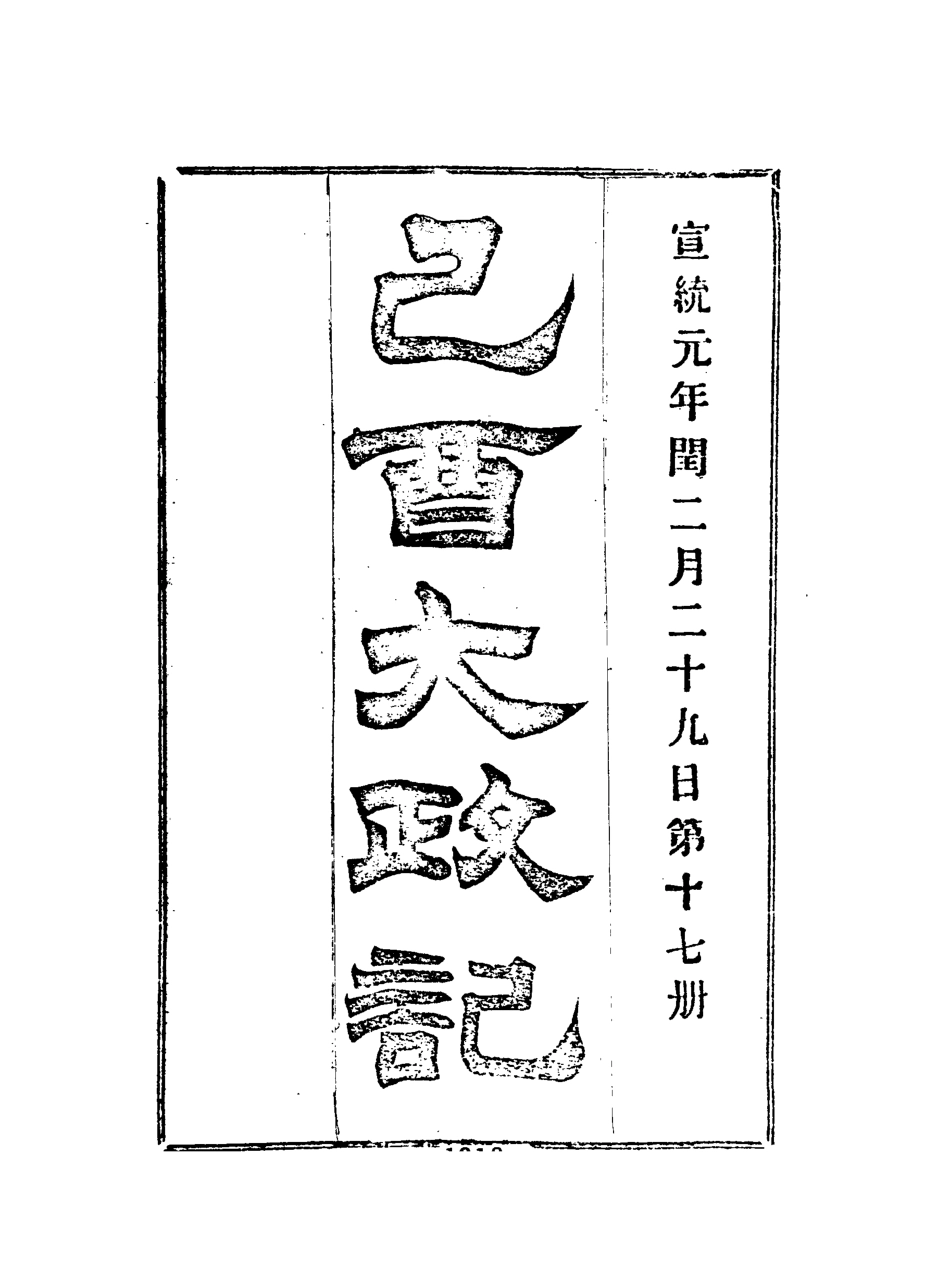 宣統元年閏二月二十九日第十七册
己酉大政記